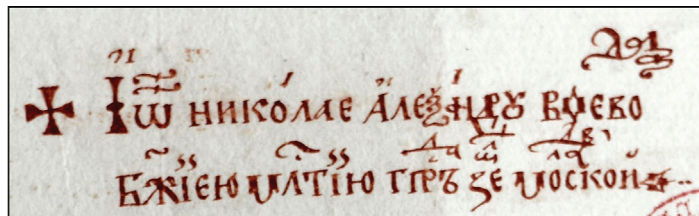 ✠ Іѡ҃ николае алеѯандрꙋ воево
бж҃їею млⷭ҇тїю гпⷣръ зеⷨ моⷧⷣаⷡской